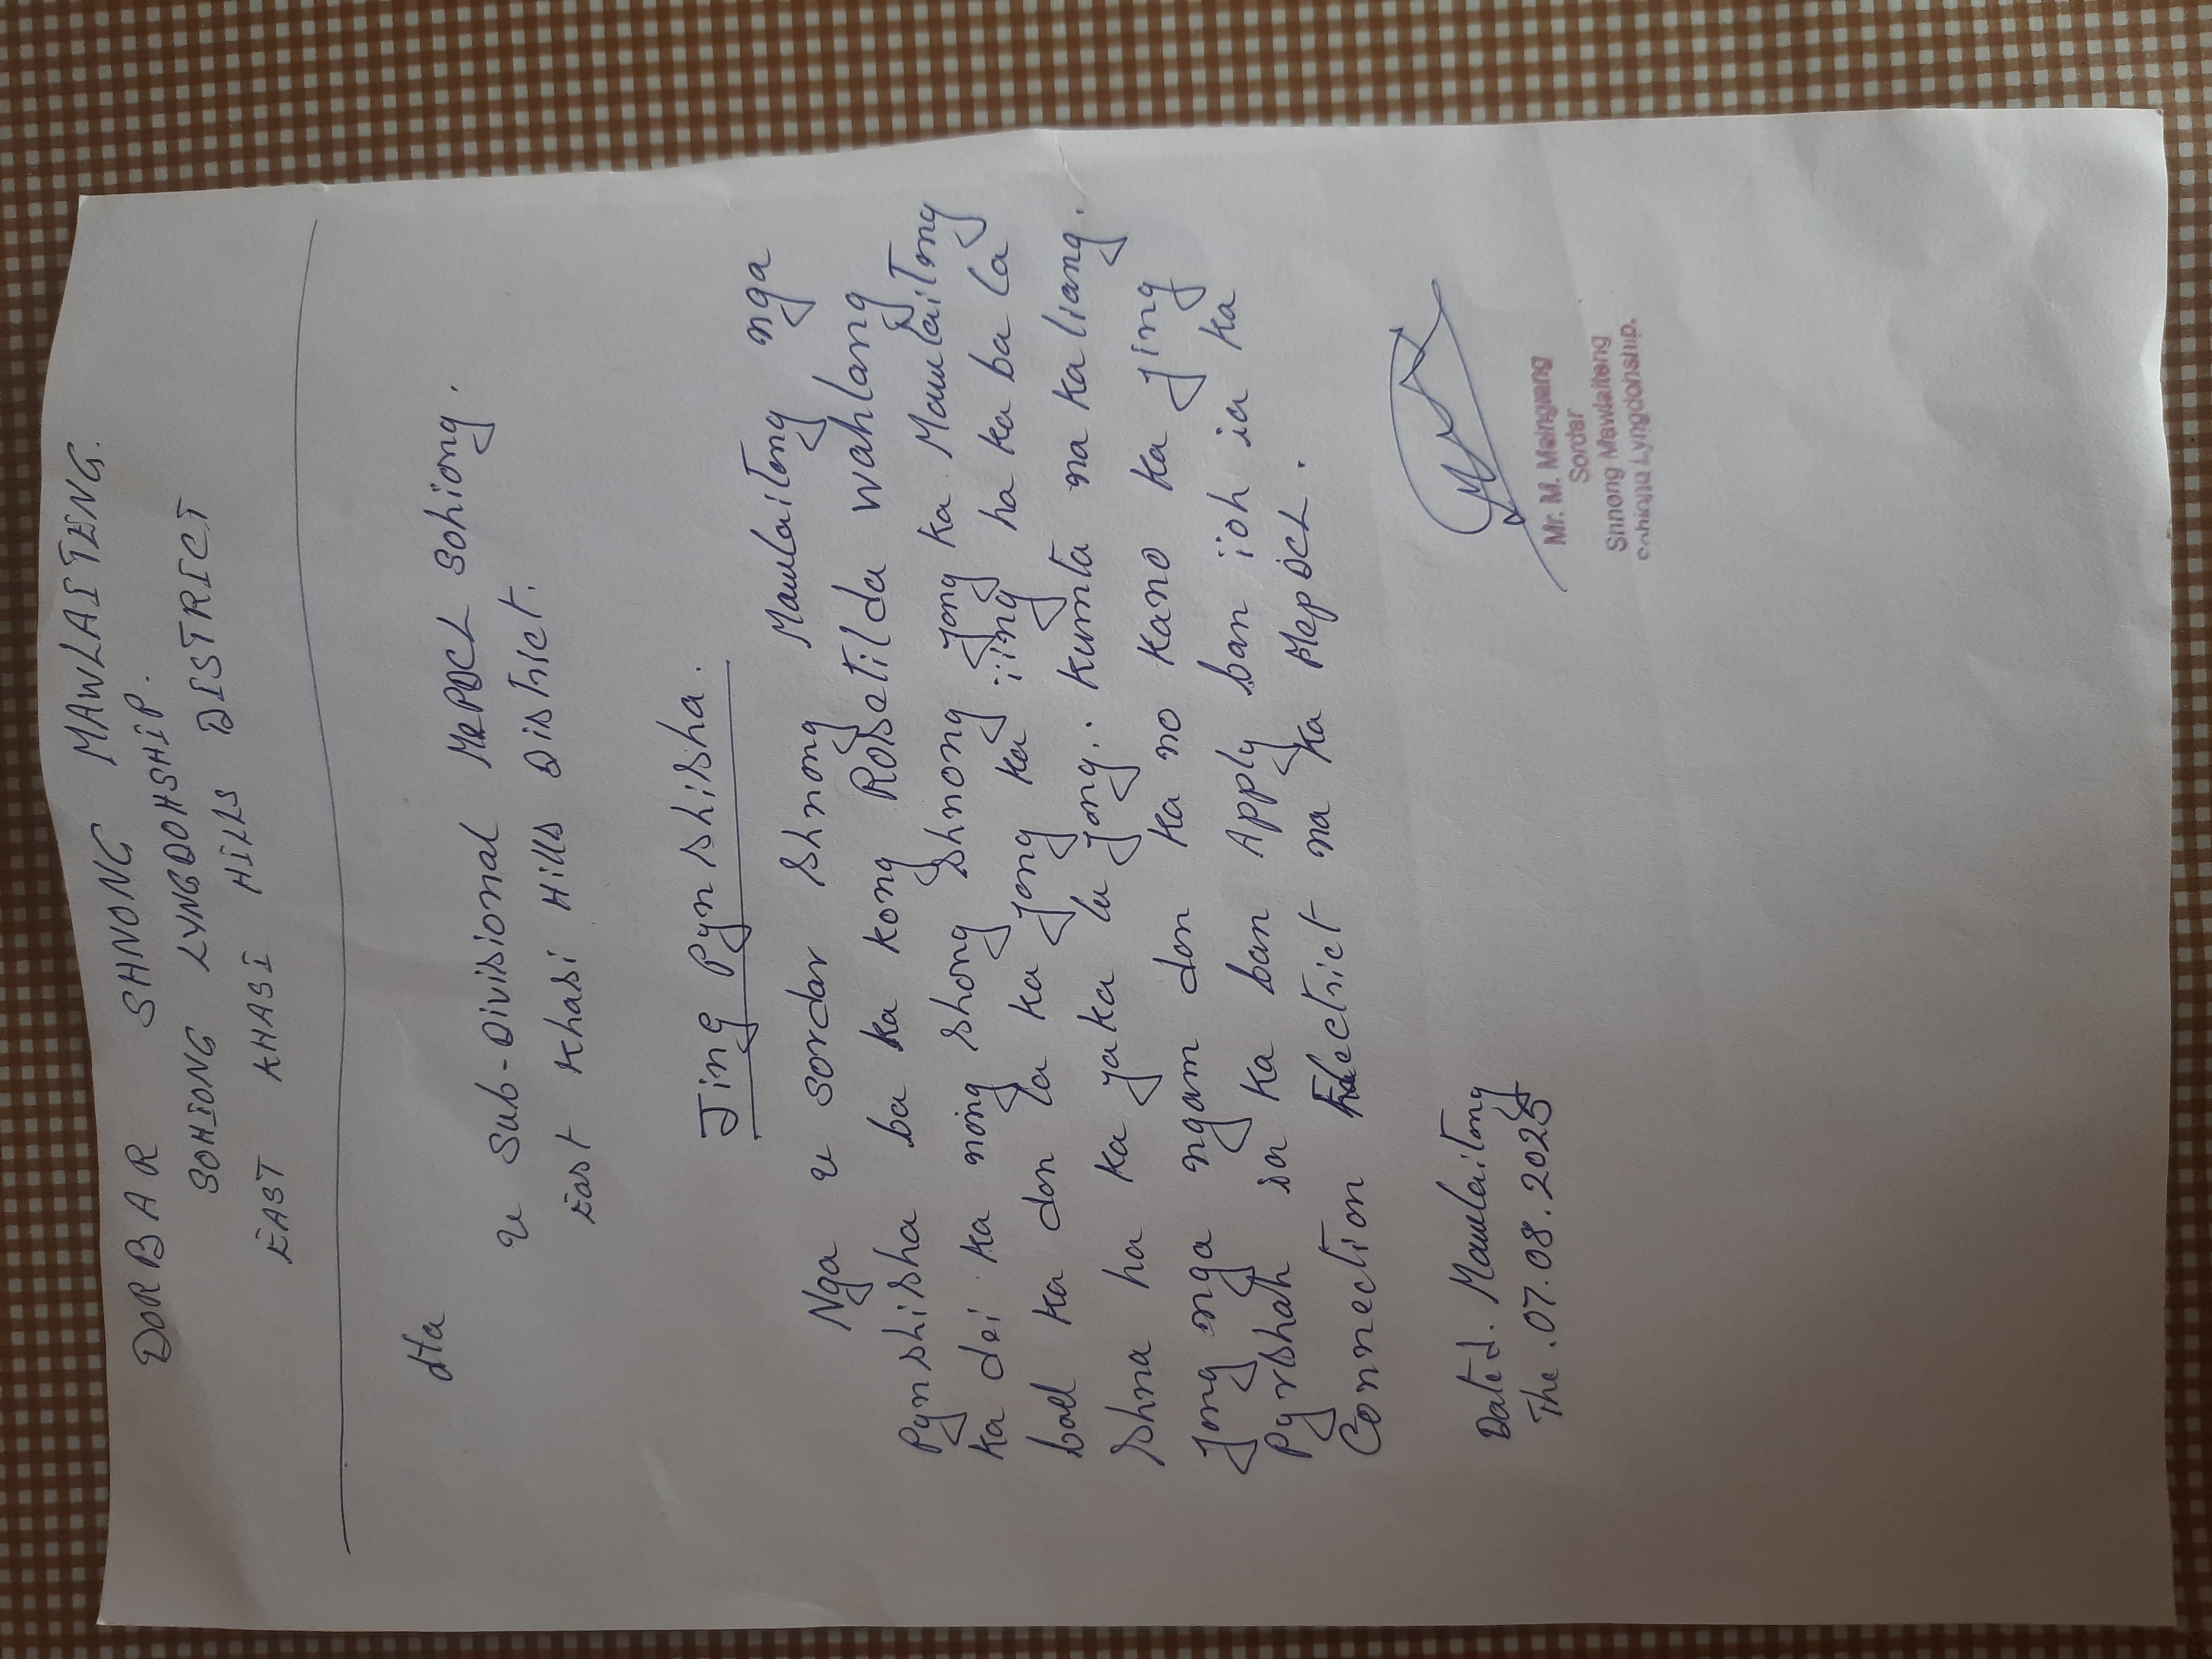 DORBAR SHNONG MAWLAITENG.
SOHIONG LYNGDOHSHIP.
EAST KHASI HILLS DISTRICT
Ha
U Sub-Divisional MePDCL Sohiong.
East Khasi Hills District.
Jing Pynshisha.
Nga u sordar shnong Mawlaiteng nga
Pynshisha ba ka kong Rosetilda Wahlang
ka dei ka nong shong shnong jong ka Mawlaiteng
bad ka don la ka jong ka iing ha ka ba la
shna ha ka jaka lu jong. kumta na ka liang.
jong nga ngam don ka no kano ka jing
Pyrshah ia ka ban Apply ban ïoh ia ka
Connection Electrict na ka MePDCL.
Dated. Mawlaiteng
The. 07.08.2025
Mr. M. Maingwang
Sordar
Shnong Mawlaiteng
Sohiong Lyngdohship.